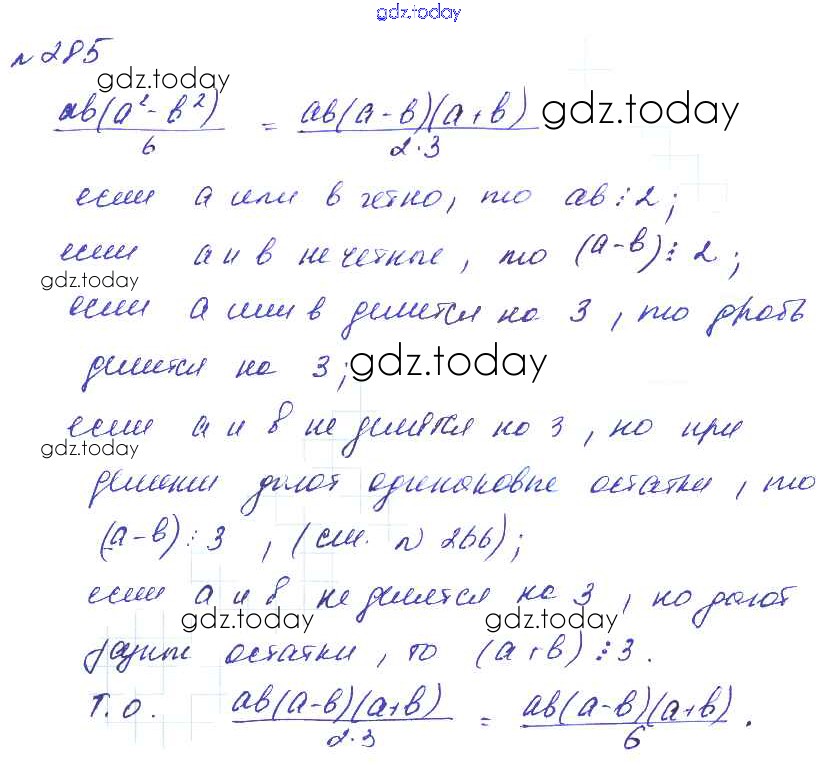 gdz.today
№ 285
gdz.today
ab(a² - b²)/6 = ab(a - b)(a + b)/2·3 gdz.today
если a или b четно, то ab ⋮ 2;
если a и b нечетные, то (a-b) ⋮ 2;
gdz.today
если a или b делится на 3, то дробь
делится на 3; gdz.today
если a и b не делятся на 3, но при
gdz.today
делении дают одинаковые остатки, то
(a-b) ⋮ 3, (см. № 266);
если a и b не делятся на 3, но дают
gdz.today gdz.today
разные остатки, то (a+b) ⋮ 3.
Т.О. ab(a-b)(a+b)/2·3 = ab(a-b)(a+b)/6.